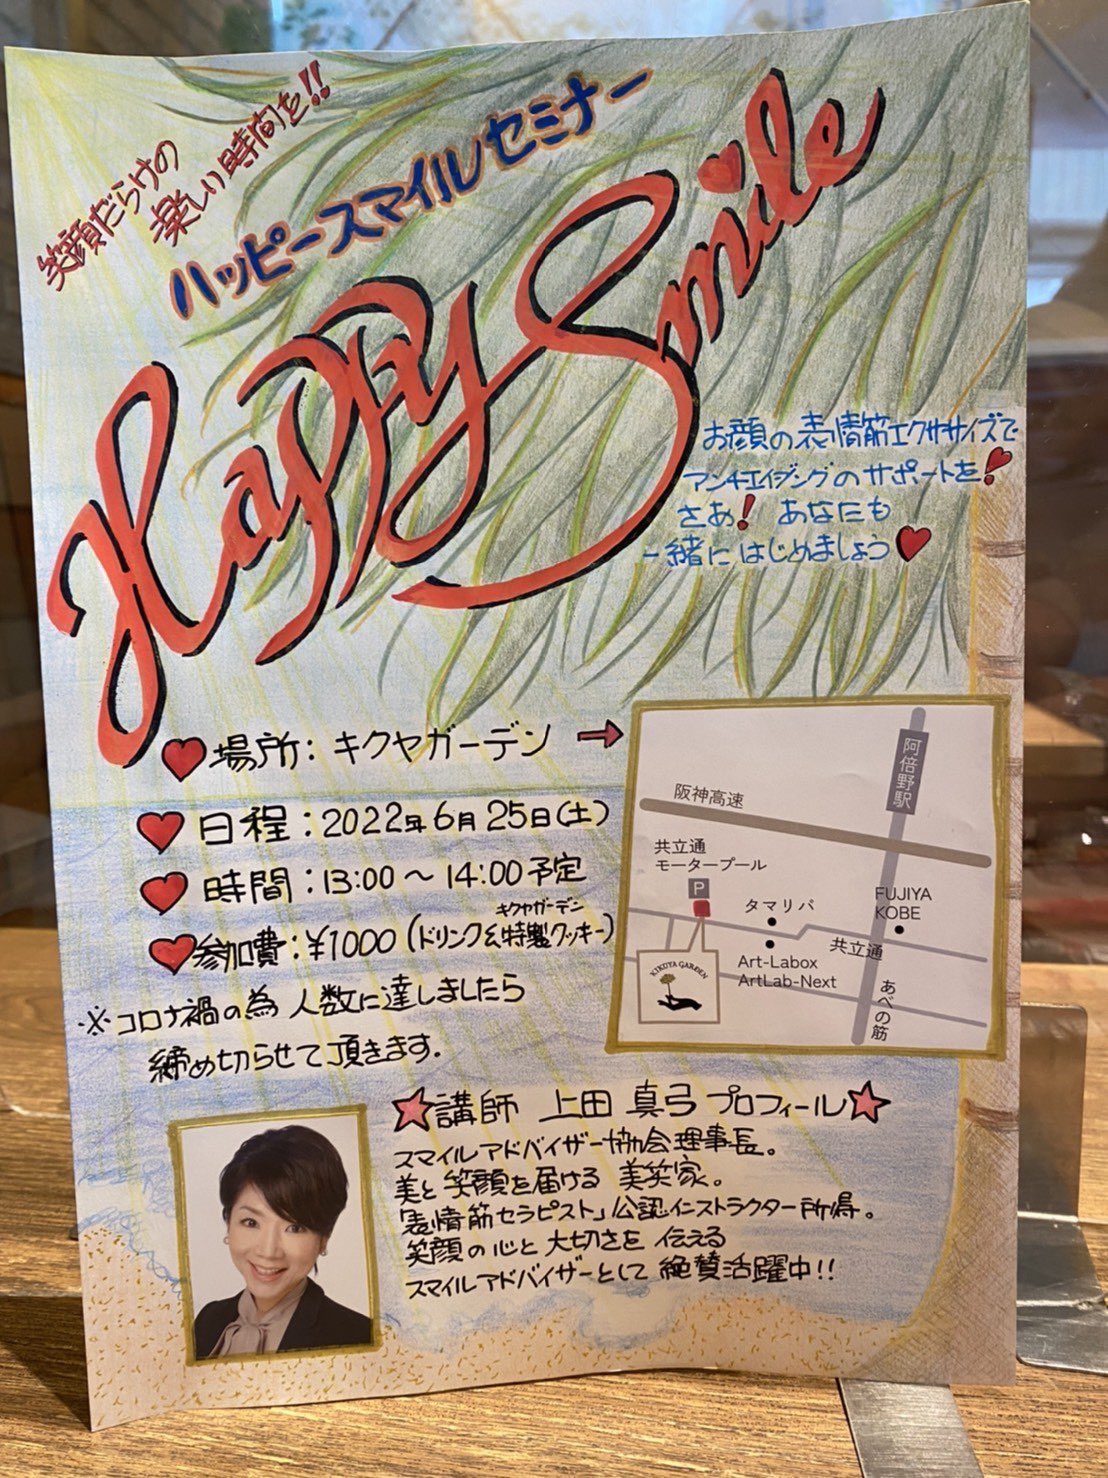 笑顔だらけの
楽しい時間を!!
ハッピースマイルセミナー
Happy Smile
お顔の表情筋エクササイズで
アンチエイジングのサポートを!
さあ! あなたも
一緒にはじめましょう
場所:キクヤガーデン →
日程:2022年6月25日(土)
時間:13:00〜14:00予定
キクヤガーデン
参加費:¥1000(ドリンク&特製クッキー)
※コロナ禍の為 人数に達しましたら
締め切らせて頂きます.
阿倍野駅
阪神高速
共立通
モータープール
P
タマリバ
FUJIYA
KOBE
共立通
Art-Labox
ArtLab-Next
あべの筋
KIKUYA GARDEN
☆講師 上田 真弓 プロフィール☆
スマイルアドバイザー協会理事長。
美と笑顔を届ける 美笑家。
「表情筋セラピスト」公認インストラクター所得。
笑顔の心と大切さを 伝える
スマイルアドバイザーとして 絶賛活躍中!!